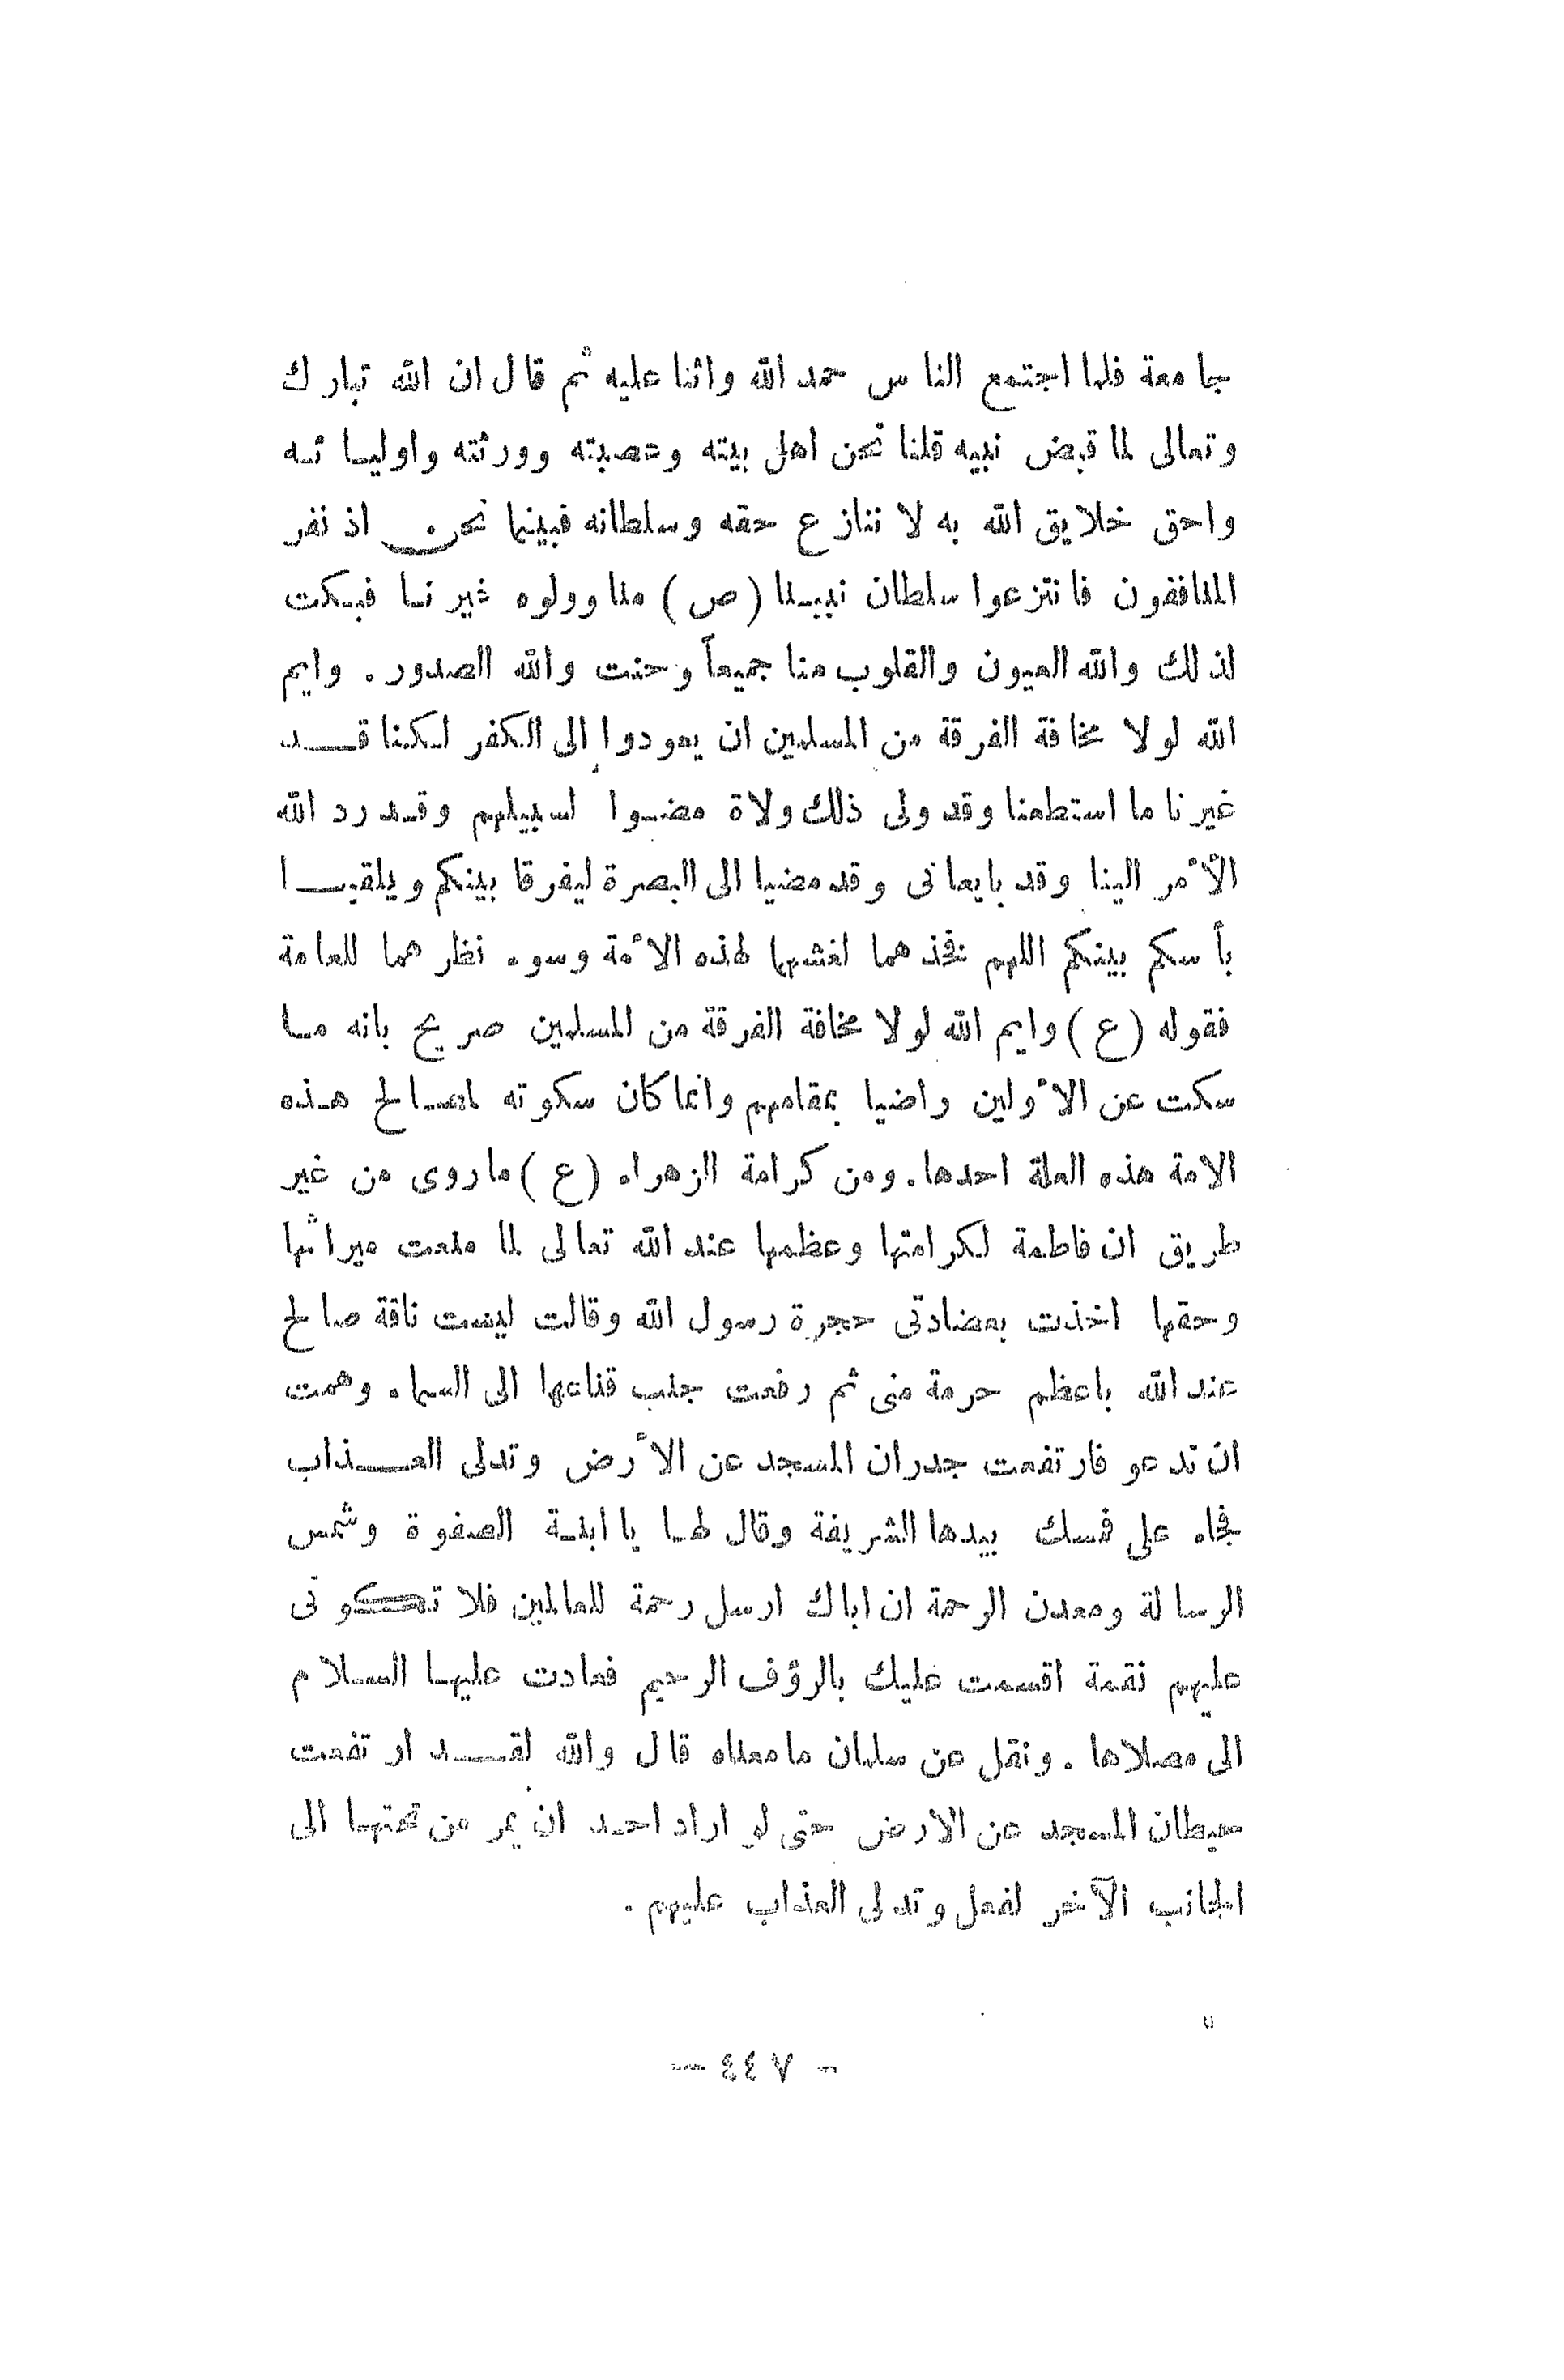 جامعة فلما اجتمع الناس حمد الله واثنا عليه ثم قال ان الله تبارك
وتعالى لما قبض نبيه قلنا نحن اهل بيته وعصبته وورثته واوليائه
واحق خلايق الله به لا ننازع حقه وسلطانه فبينما نحن اذ نفر
المنافقون فانتزعوا سلطان نبينا (ص) منا وولوه غيرنا فبكت
لذلك والله العيون والقلوب منا جميعاً وحنت والله الصدور . وايم
الله لولا مخافة الفرقة من المسلمين ان يعودوا إلى الكفر لكنا قد
غيرنا ما استطعنا وقد ولى ذلك ولاة مضوا لسبيلهم وقد رد الله
الأمر الينا وقد بايعانى وقد مضيا الى البصرة ليفرقا بينكم ويلقيا
بأسكم بينكم اللهم نفذهما لغشهما لهذه الأمة وسوء نظرهما للعامة
فقوله (ع) وايم الله لولا مخافة الفرقة من المسلمين صريح بانه ما
سكت عن الأولين راضيا بمقامهم وانما كان سكوته لمصالح هذه
الامة هذه العلة احدها . ومن كرامة الزهراء (ع) ما روى من غير
طريق ان فاطمة لكرامتها وعظمها عند الله تعالى لما منعت ميراثها
وحقها اخذت بعضادتى حجرة رسول الله وقالت ليست ناقة صالح
عند الله باعظم حرمة منى ثم رفعت جنب قناعها الى السماء وهمت
ان تدعو فارتفعت جدران المسجد عن الأرض وتدلى العذاب
فجاء على فمسك بيدها الشريفة وقال لها يا ابنة الصفوة وشمس
الرسالة ومعدن الرحمة ان اباك ارسل رحمة للعالمين فلا تكونى
عليهم نقمة اقسمت عليك بالرؤف الرحيم فعادت عليها السلام
الى مصلاها . ونقل عن سلمان ما معناه قال والله لقد ارتفعت
حيطان المسجد عن الارض حتى لو اراد احد ان يمر من تحتها الى
الجانب الآخر لفعل وتدلى العذاب عليهم .
- ٤٤٧ -